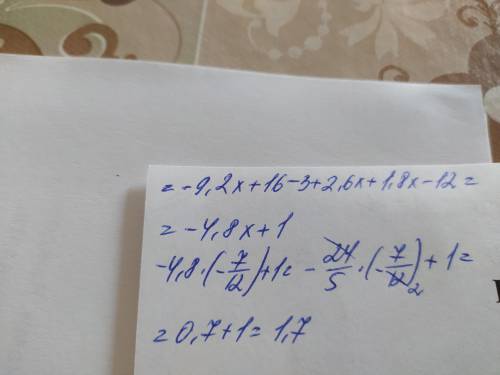 = -9,2x+16-3+2,6x+1,8x-12=
= -4,8x+1
-4,8·(-7/12)+1= -24/5·(-7/12)2+1=
= 0,7+1= 1,7